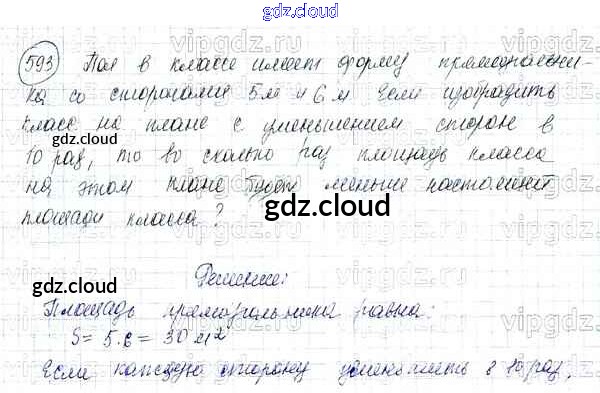 gdz.cloud
593 Пол в классе имеет форму прямоугольни-
ка со сторонами 5м и 6 м. Если изобразить
класс на плане с уменьшением сторон в
10 раз, то во сколько раз площадь класса
на этом плане будет меньше настоящей
площади класса?
gdz.cloud
gdz.cloud
gdz.cloud
Решение:
gdz.cloud
Площадь прямоугольника равна:
S = 5·6 = 30 м2
Если каждую сторону уменьшить в 10 раз,
gdz.cloud